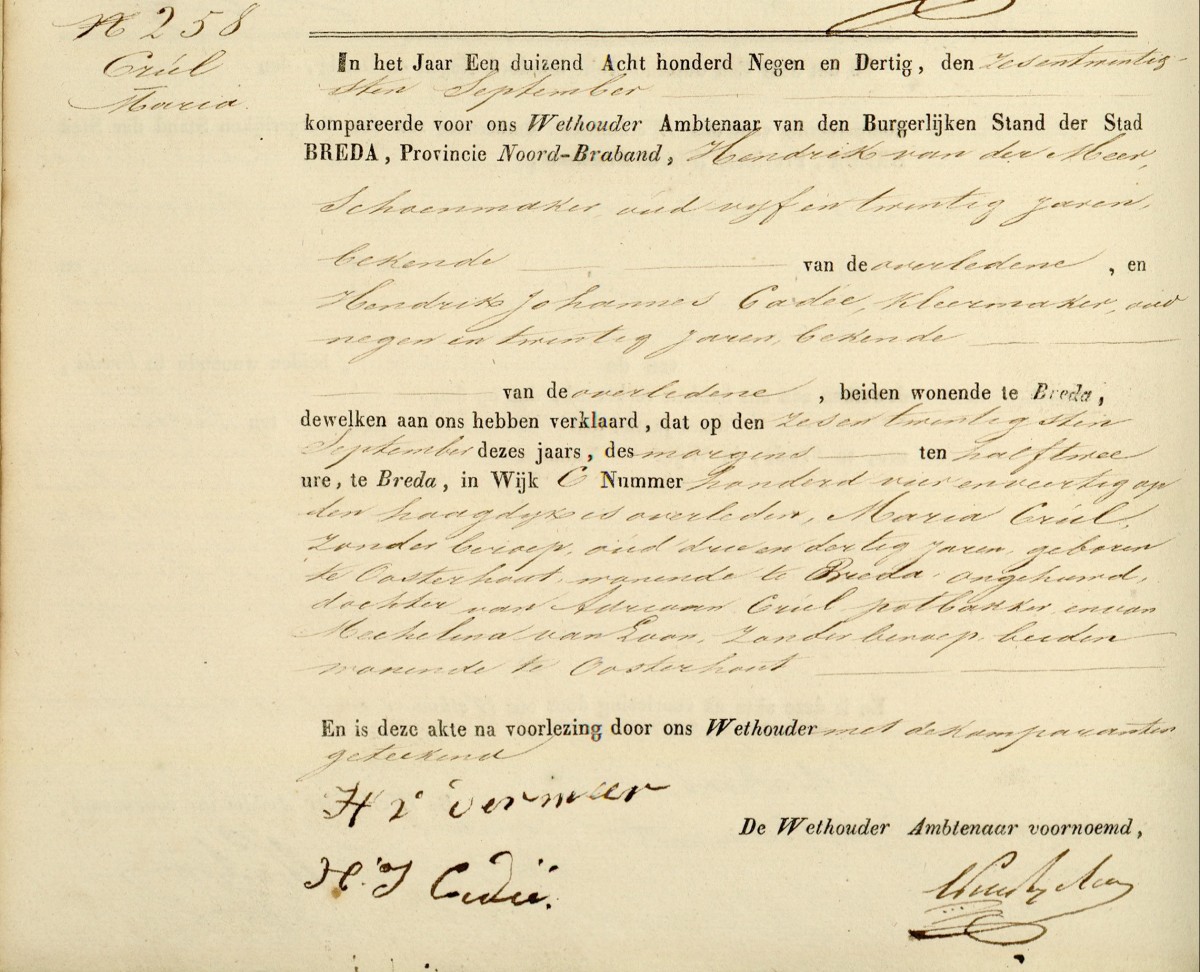 N 258
Crúl
Maria.
In het Jaar Een duizend Acht honderd Negen en Dertig, den zesentwintig-
sten September
kompareerde voor ons Wethouder Ambtenaar van den Burgerlijken Stand der Stad
BREDA, Provincie Noord-Braband, Hendrik van der Meer,
Schoenmaker, oud vyf en twintig jaren,
bekende van de overledene, en
Hendrik Johannes Cadée, Kleermaker, oud
negen en twintig jaren, bekende
van de overledene, beiden wonende te Breda,
dewelken aan ons hebben verklaard, dat op den zesentwintigsten
September dezes jaars, des morgens ten half twee
ure, te Breda, in Wijk C Nummer honderd vier en veertig op
den haagdyk is overleden, Maria Crúl,
zonder beroep, oud drie en dertig jaren, geboren
te Oosterhout, wonende te Breda, ongehuwd,
dochter van Adriaan Crúl potbakker, en van
Mechelina van Loon, zonder beroep, beiden
wonende te Oosterhout
En is deze akte na voorlezing door ons Wethouder met de komparanten
geteekend
H vermeer
De Wethouder Ambtenaar voornoemd,
H. J Cadeé.